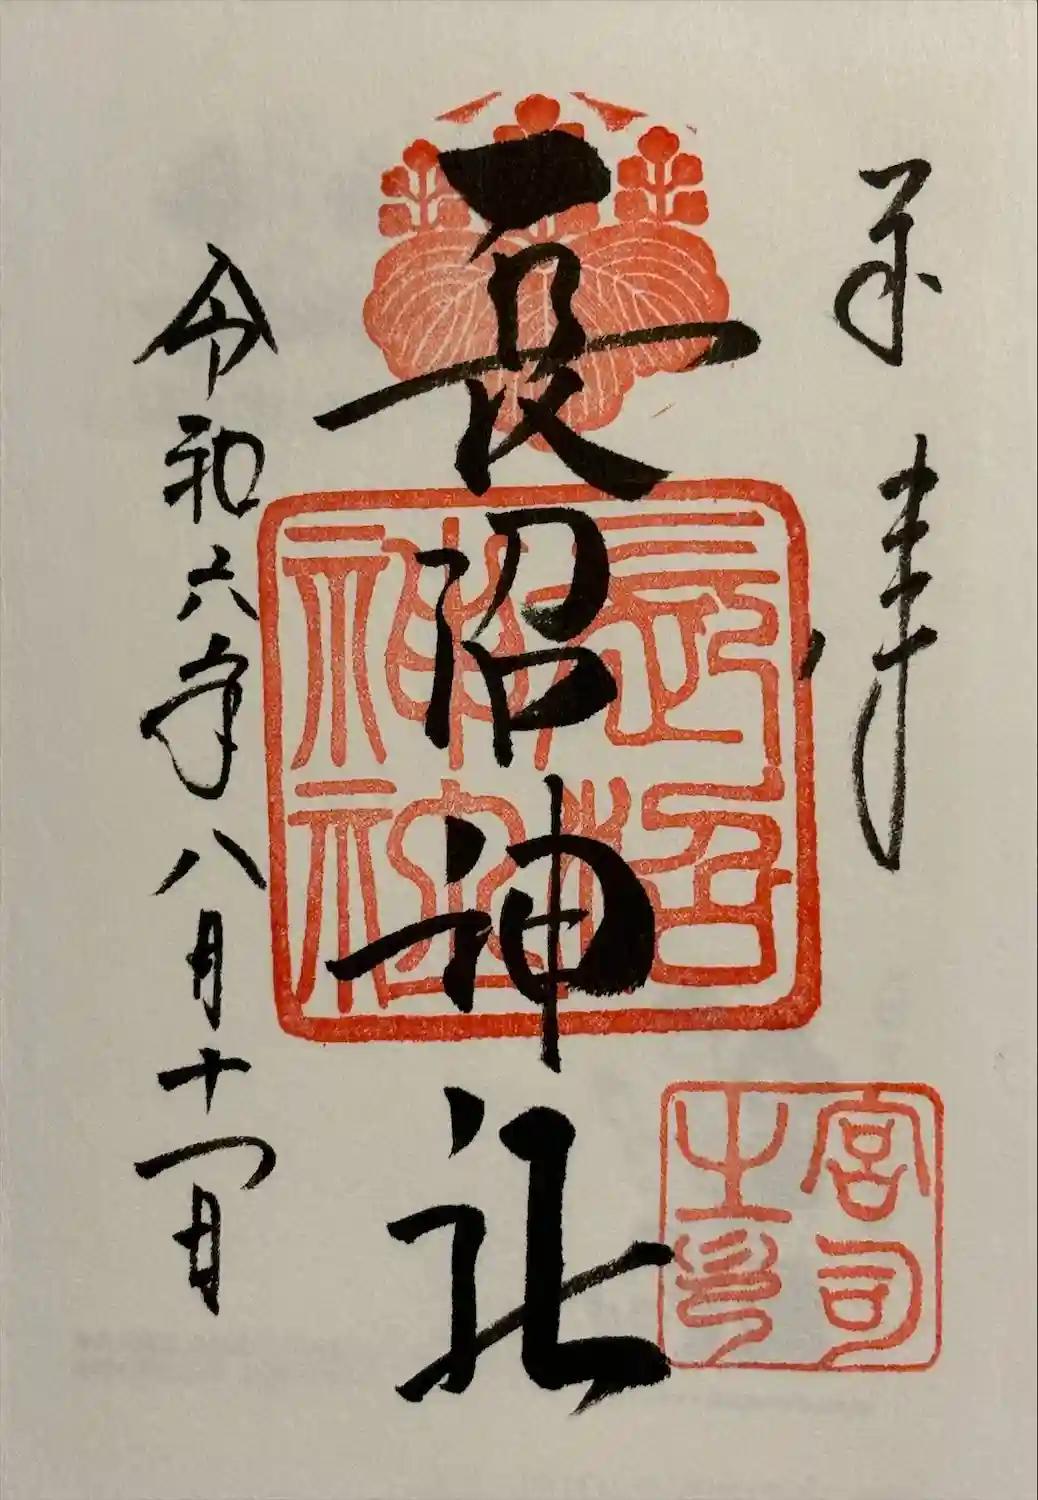 長沼神社
令和六年八月十一日
長沼
神社
宮司
之印